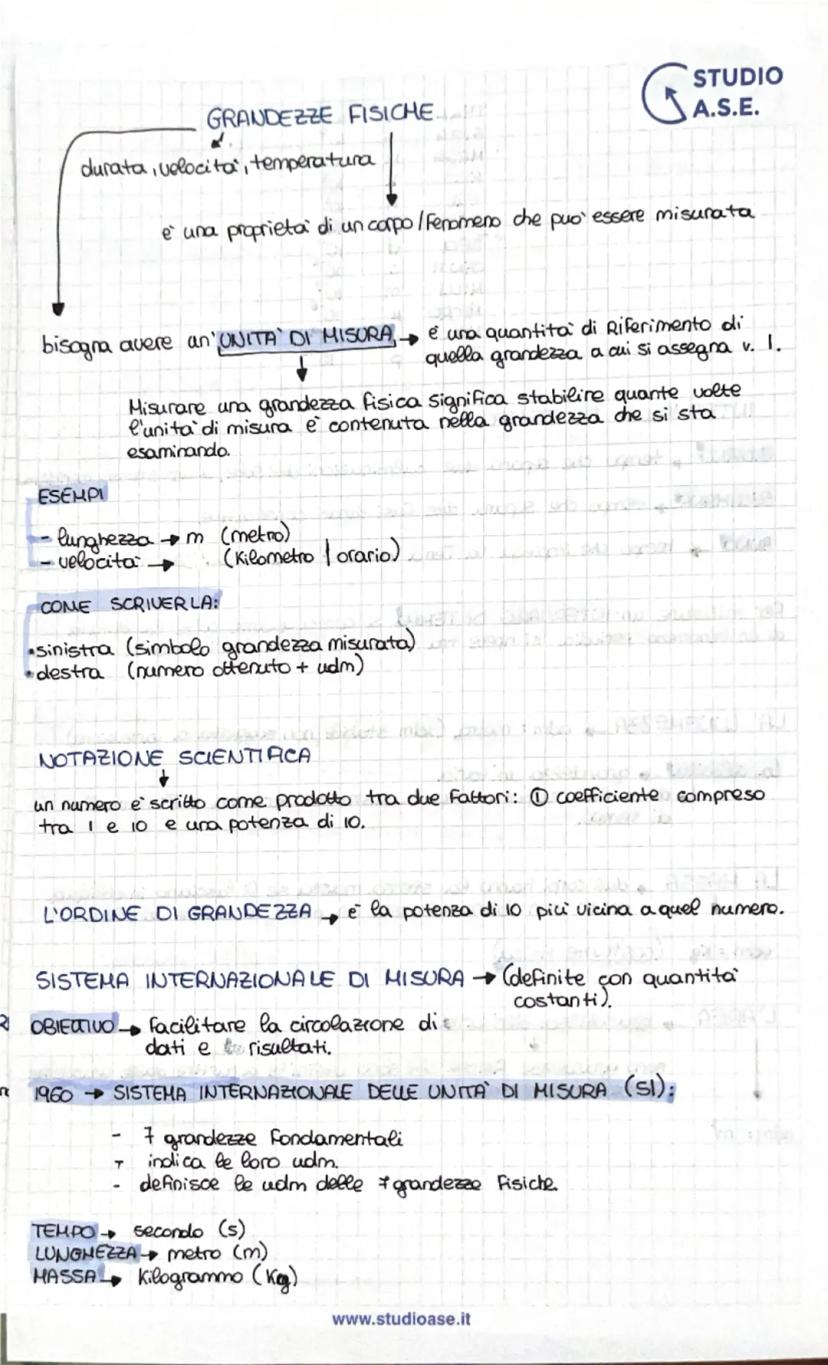 STUDIO
A.S.E.
GRANDEZZE FISICHE
durata, velocità, temperatura
è una proprietà di un corpo/fenomeno che può essere misurata
bisogna avere un' UNITÀ DI MISURA → è una quantità di Riferimento di
quella grandezza a cui si assegna v. 1.
Misurare una grandezza fisica significa stabilire quante volte
l'unità di misura è contenuta nella grandezza che si sta
esaminando.
ESEMPI
- lunghezza → m (metro)
- velocità → (Kilometro | orario)
COME SCRIVERLA:
• sinistra (simbolo grandezza misurata)
• destra (numero ottenuto + udm)
NOTAZIONE SCIENTIFICA
un numero è scritto come prodotto tra due fattori: ① coefficiente compreso
tra 1 e 10 e una potenza di 10.
L'ORDINE DI GRANDEZZA → è la potenza di 10 più vicina a quel numero.
SISTEMA INTERNAZIONALE DI MISURA → (definite con quantità
costanti).
OBIETTIVO → facilitare la circolazione di
dati e risultati.
1960 → SISTEMA INTERNAZIONALE DELLE UNITÀ DI MISURA (SI):
- 7 grandezze fondamentali
- indica le loro udm.
- definisce le udm delle 7 grandezze fisiche.
TEMPO → secondo (s)
LUNGHEZZA → metro (m)
MASSA → Kilogrammo (Kg)
www.studioase.it